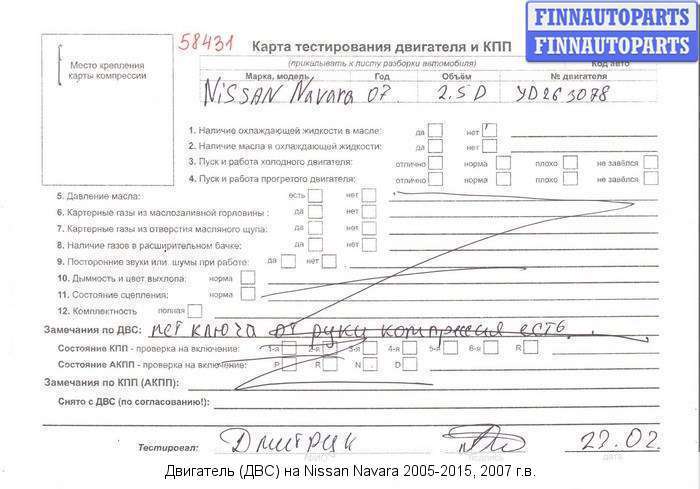 FINNAUTOPARTS
FINNAUTOPARTS
58431
Карта тестирования двигателя и КПП
Место крепления
карты компрессии
(прикалывать к листу разборки автомобиля)
Код авто
Марка, модель Год Объём № двигателя
NiSSAN Navara 07. 2.5D
1. Наличие охлаждающей жидкости в масле: да нет
2. Наличие масла в охлаждающей жидкости: да нет
3. Пуск и работа холодного двигателя: отлично норма плохо не завёлся
4. Пуск и работа прогретого двигателя: отлично норма плохо не завёлся
5. Давление масла: есть нет
6. Картерные газы из маслозаливной горловины : да нет
7. Картерные газы из отверстия масляного щупа: да нет
8. Наличие газов в расширительном бачке: да нет
9. Посторонние звуки или шумы при работе: да нет
10. Дымность и цвет выхлопа: норма
11. Состояние сцепления: норма
12. Комплектность полная
Замечания по ДВС: нет ключа от руки компрессия есть
Состояние КПП - проверка на включение: 1-я 2-я 3-я 4-я 5-я 6-я R
Состояние АКПП - проверка на включение: P R N D
Замечания по КПП (АКПП):
Снято с ДВС (по согласованию!):
Тестировал: 23.02
подпись дата
Двигатель (ДВС) на Nissan Navara 2005-2015, 2007 г.в.